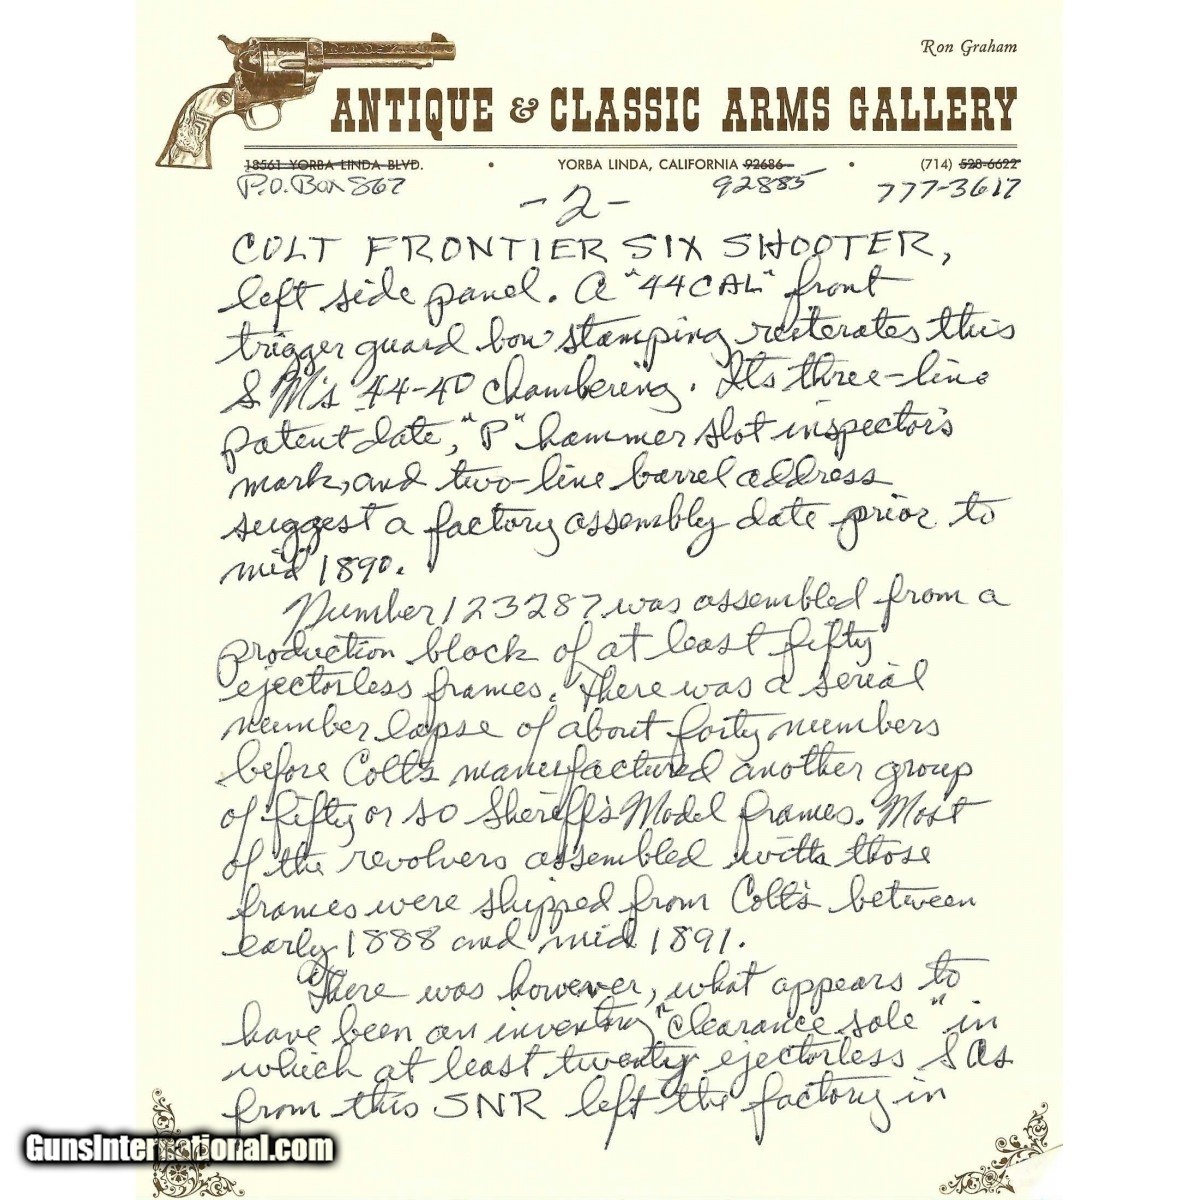 Ron Graham
ANTIQUE & CLASSIC ARMS GALLERY
18561 YORBA LINDA BLVD. • YORBA LINDA, CALIFORNIA 92686 • (714) 528-6622
P.O. Box 867 92885 777-3617
-2-
COLT FRONTIER SIX SHOOTER,
left side panel. A "44CAL" front
trigger guard bow stamping reiterates this
SM's 44-40 chambering. Its three-line
patent date, "P" hammer slot inspector's
mark, and two-line barrel address
suggest a factory assembly date prior to
mid 1890.
Number 123287 was assembled from a
production block of at least fifty
ejectorless frames. There was a serial
number lapse of about forty numbers
before Colt's manufactured another group
of fifty or so Sheriff's Model frames. Most
of the revolvers assembled with those
frames were shipped from Colt's between
early 1888 and mid 1891.
There was however, what appears to
have been an inventory "clearance sale" in
which at least twenty ejectorless SAs
from this SNR left the factory in
GunsInternational.com